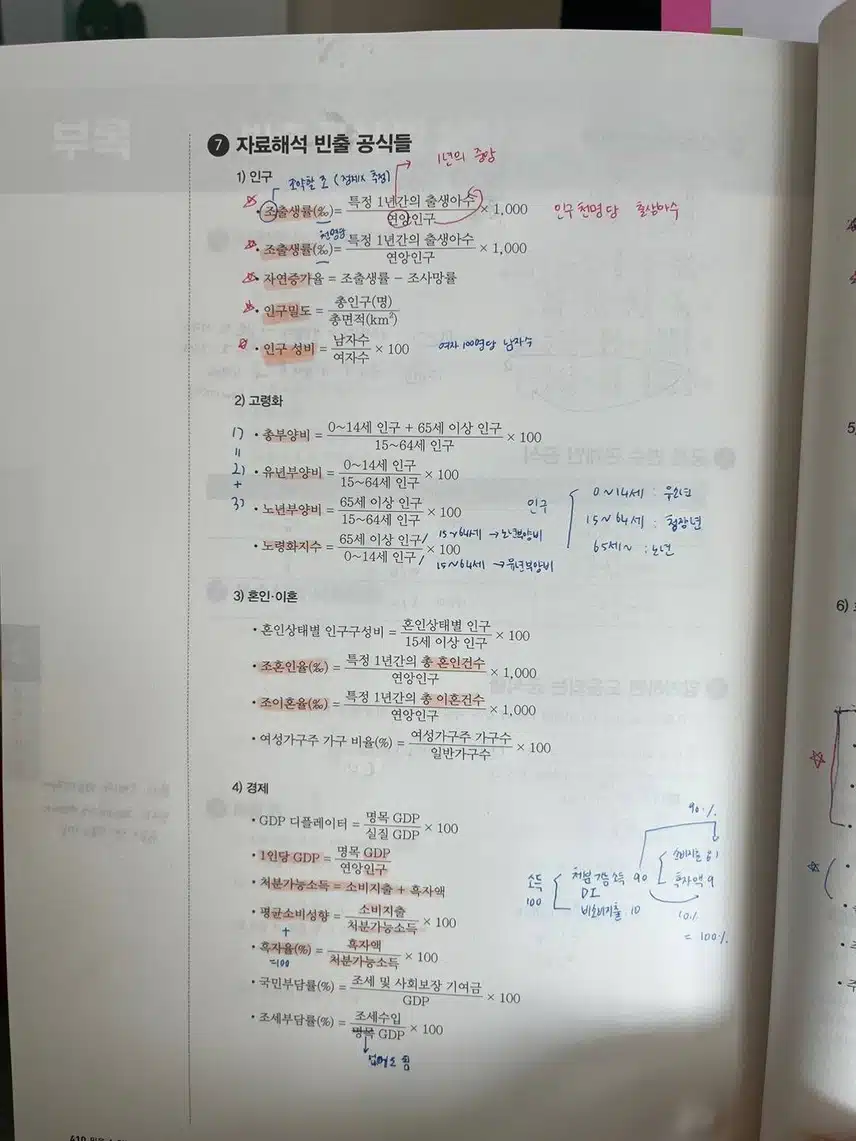 ❼ 자료해석 빈출 공식들
1년의 중앙
1) 인구
조출생률(‰)= 특정 1년간의 출생아수 / 연앙인구 × 1,000 인구 천명당 출생아수
천명당
조출생률(‰)= 특정 1년간의 출생아수 / 연앙인구 × 1,000
자연증가율 = 조출생률 − 조사망률
인구밀도 = 총인구(명) / 총면적(km²)
인구 성비 = 남자수 / 여자수 × 100 여자 100명당 남자수
2) 고령화
1) 총부양비 = 0~14세 인구 + 65세 이상 인구 / 15~64세 인구 × 100
=
2) 유년부양비 = 0~14세 인구 / 15~64세 인구 × 100
+
3) 노년부양비 = 65세 이상 인구 / 15~64세 인구 × 100
노령화지수 = 65세 이상 인구 / 0~14세 인구 × 100
/ 15~64세 → 노년부양비
/ 15~64세 → 유년부양비
인구
0~14세 : 유소년
15~64세 : 청장년
65세~ : 노년
3) 혼인·이혼
혼인상태별 인구구성비 = 혼인상태별 인구 / 15세 이상 인구 × 100
조혼인율(‰) = 특정 1년간의 총 혼인건수 / 연앙인구 × 1,000
조이혼율(‰) = 특정 1년간의 총 이혼건수 / 연앙인구 × 1,000
여성가구주 가구 비율(%) = 여성가구주 가구수 / 일반가구수 × 100
4) 경제
GDP 디플레이터 = 명목 GDP / 실질 GDP × 100
1인당 GDP = 명목 GDP / 연앙인구
처분가능소득 = 소비지출 + 흑자액
평균소비성향 = 소비지출 / 처분가능소득 × 100
+
흑자율(%) = 흑자액 / 처분가능소득 × 100
=100
국민부담률(%) = 조세 및 사회보장 기여금 / GDP × 100
조세부담률(%) = 조세수입 / 명목 GDP × 100
90%
소득
100
처분가능소득 90
DI
비소비지출 10
소비지출 81
흑자액 9
10%
= 100%
5
6)
410